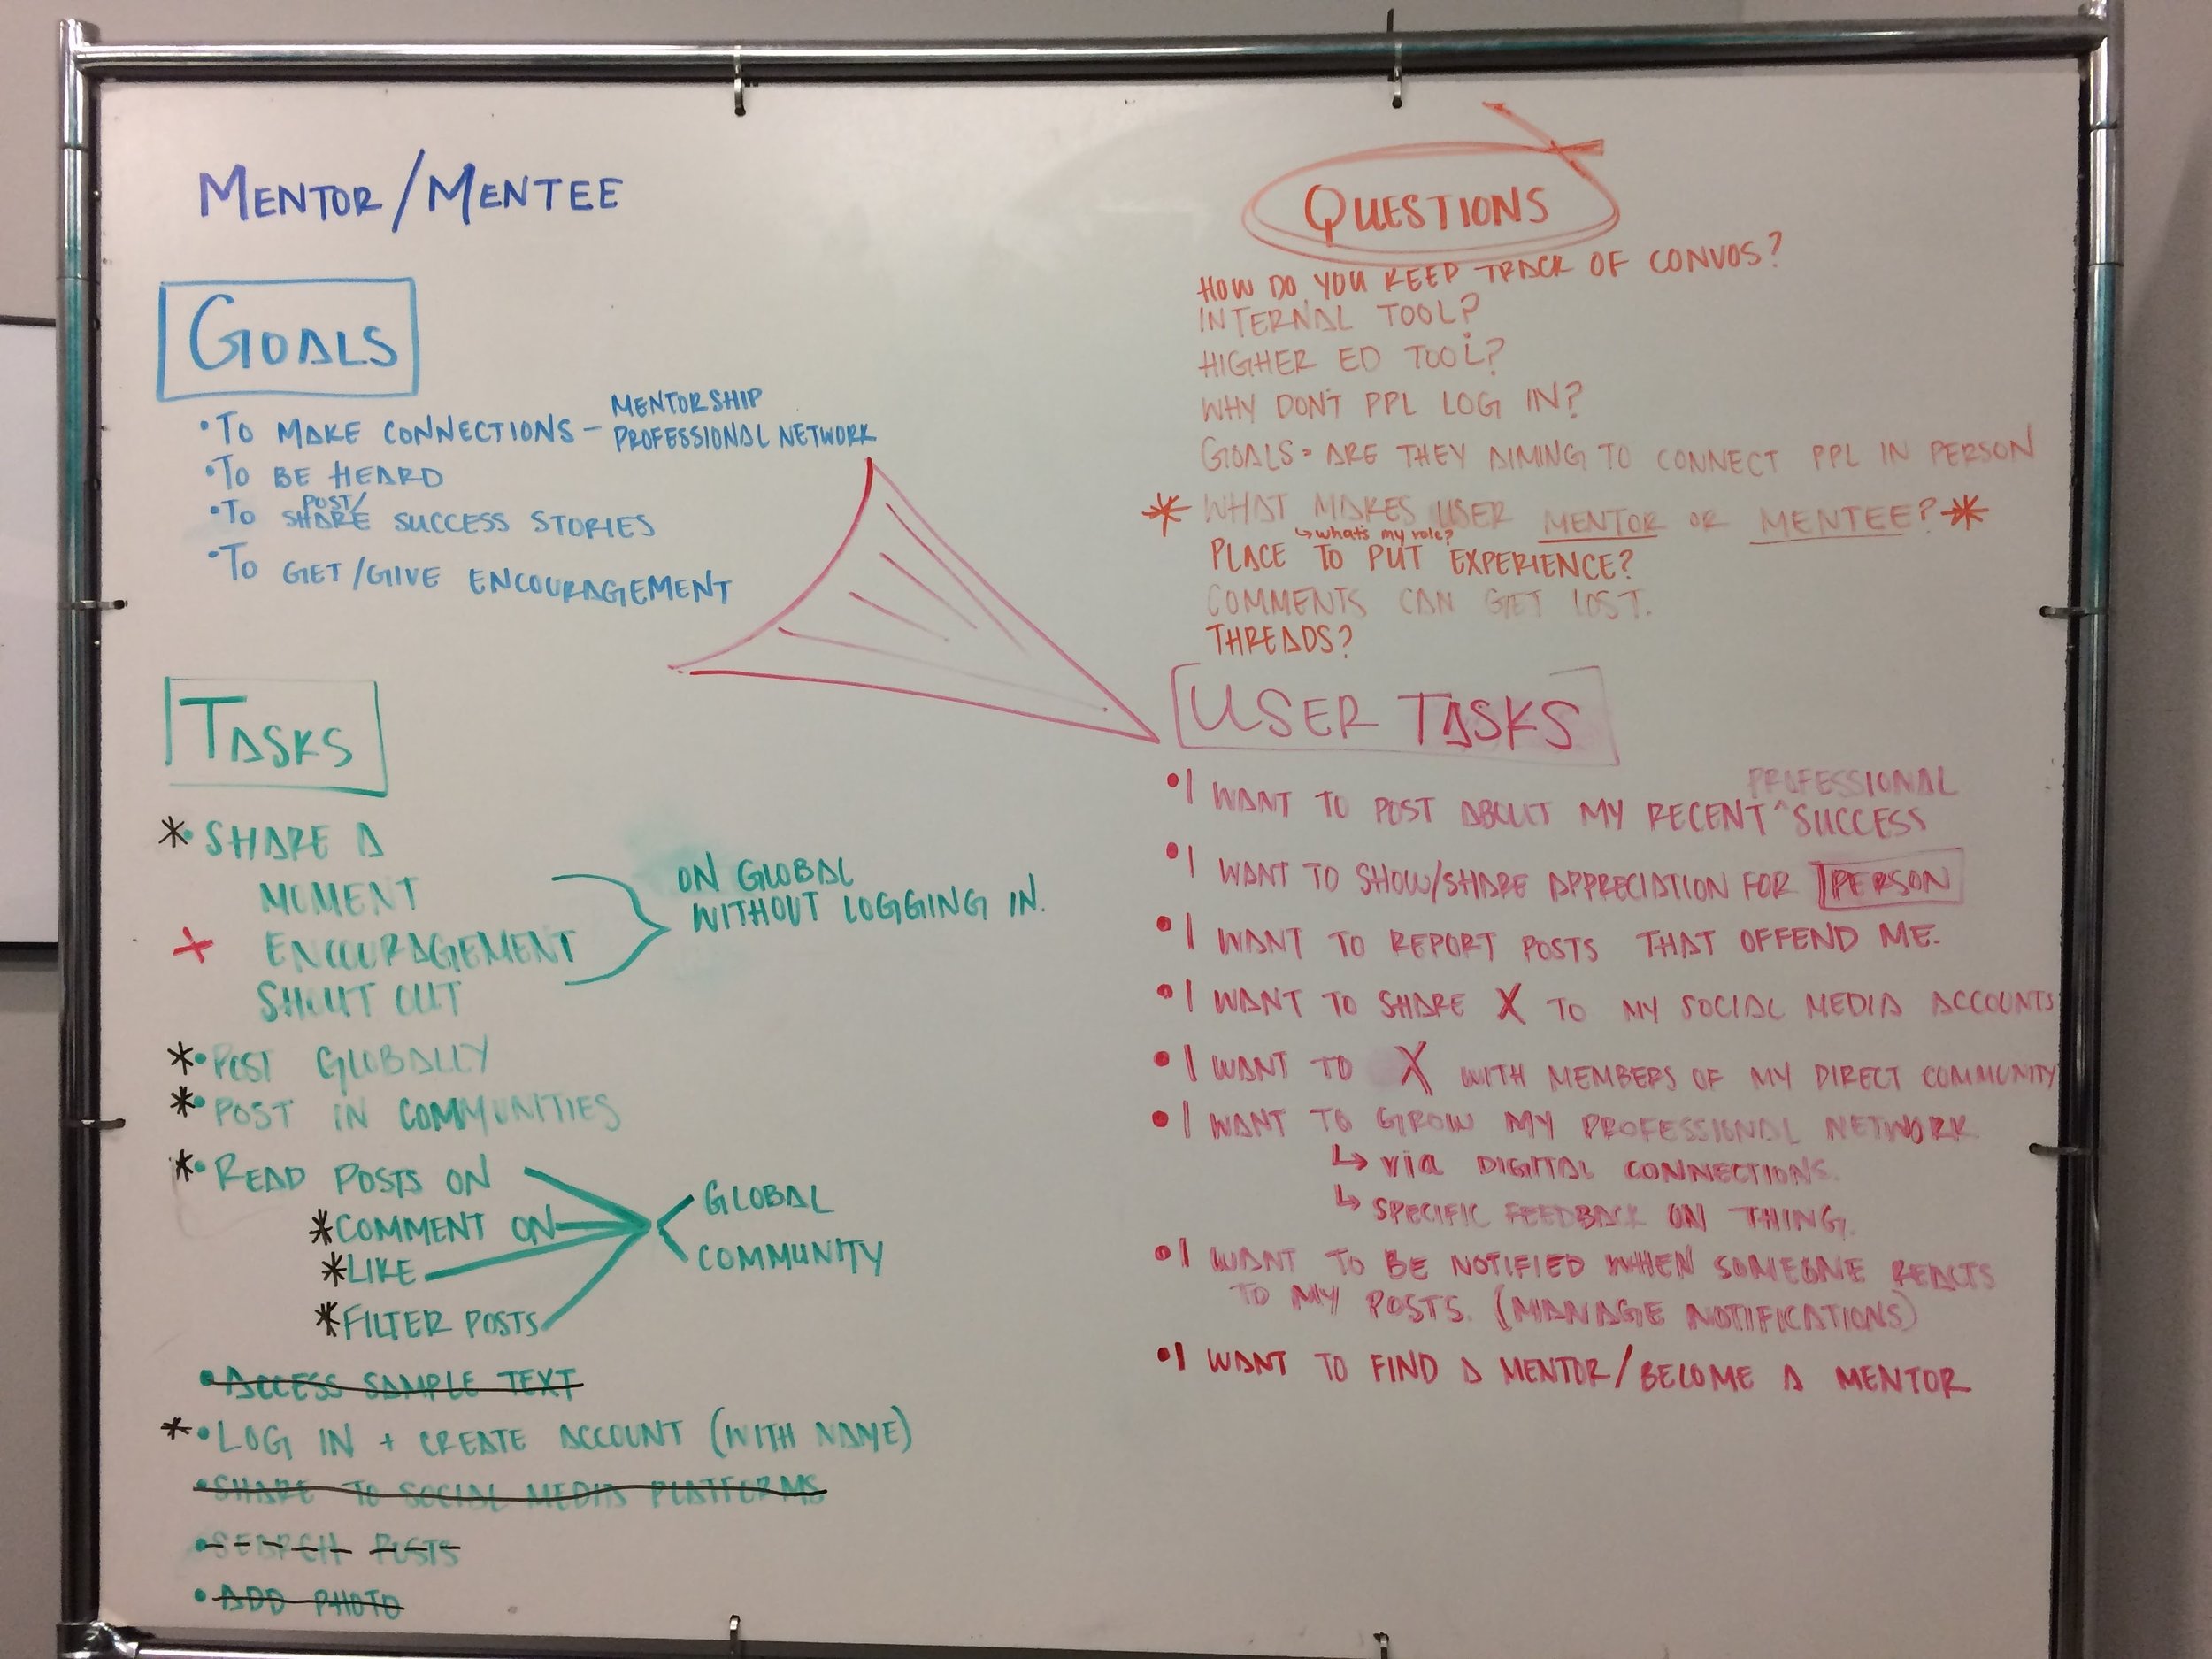 MENTOR/MENTEE
GOALS
• TO MAKE CONNECTIONS – MENTORSHIP
PROFESSIONAL NETWORK
• TO BE HEARD
• TO POST/
SHARE SUCCESS STORIES
• TO GET/GIVE ENCOURAGEMENT
TASKS
* • SHARE A
MOMENT
ENCOURAGEMENT
SHOUT OUT
ON GLOBAL
WITHOUT LOGGING IN.
* • POST GLOBALLY
* • POST IN COMMUNITIES
* • READ POSTS ON
* COMMENT ON
* LIKE
* FILTER POSTS
GLOBAL
COMMUNITY
• ACCESS SAMPLE TEXT
* • LOG IN + CREATE ACCOUNT (WITH NAME)
• SHARE TO SOCIAL MEDIA PLATFORMS
• SEARCH POSTS
• ADD PHOTO
QUESTIONS
HOW DO YOU KEEP TRACK OF CONVOS?
INTERNAL TOOL?
HIGHER ED TOOL?
WHY DON'T PPL LOG IN?
GOALS = ARE THEY AIMING TO CONNECT PPL IN PERSON
* WHAT MAKES USER MENTOR OR MENTEE? *
↳ what's my role?
PLACE TO PUT EXPERIENCE?
COMMENTS CAN GET LOST.
THREADS?
USER TASKS
• I WANT TO POST ABOUT MY RECENT ^ PROFESSIONAL SUCCESS
• I WANT TO SHOW/SHARE APPRECIATION FOR PERSON
• I WANT TO REPORT POSTS THAT OFFEND ME.
• I WANT TO SHARE X TO MY SOCIAL MEDIA ACCOUNTS
• I WANT TO X WITH MEMBERS OF MY DIRECT COMMUNITY
• I WANT TO GROW MY PROFESSIONAL NETWORK
↳ via DIGITAL CONNECTIONS.
↳ SPECIFIC FEEDBACK ON THING.
• I WANT TO BE NOTIFIED WHEN SOMEONE REACTS
TO MY POSTS. (MANAGE NOTIFICATIONS)
• I WANT TO FIND A MENTOR/BECOME A MENTOR